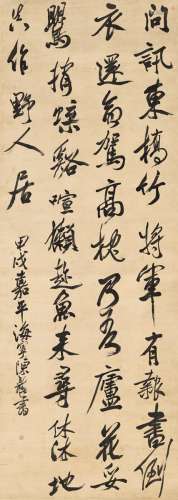 問訊東橋竹將軍有報書倒
衣還命駕高枕乃吾廬花妥
鶯捎蝶谿喧獺趁魚尋休沐地
真作野人居
甲戌嘉平海寧書